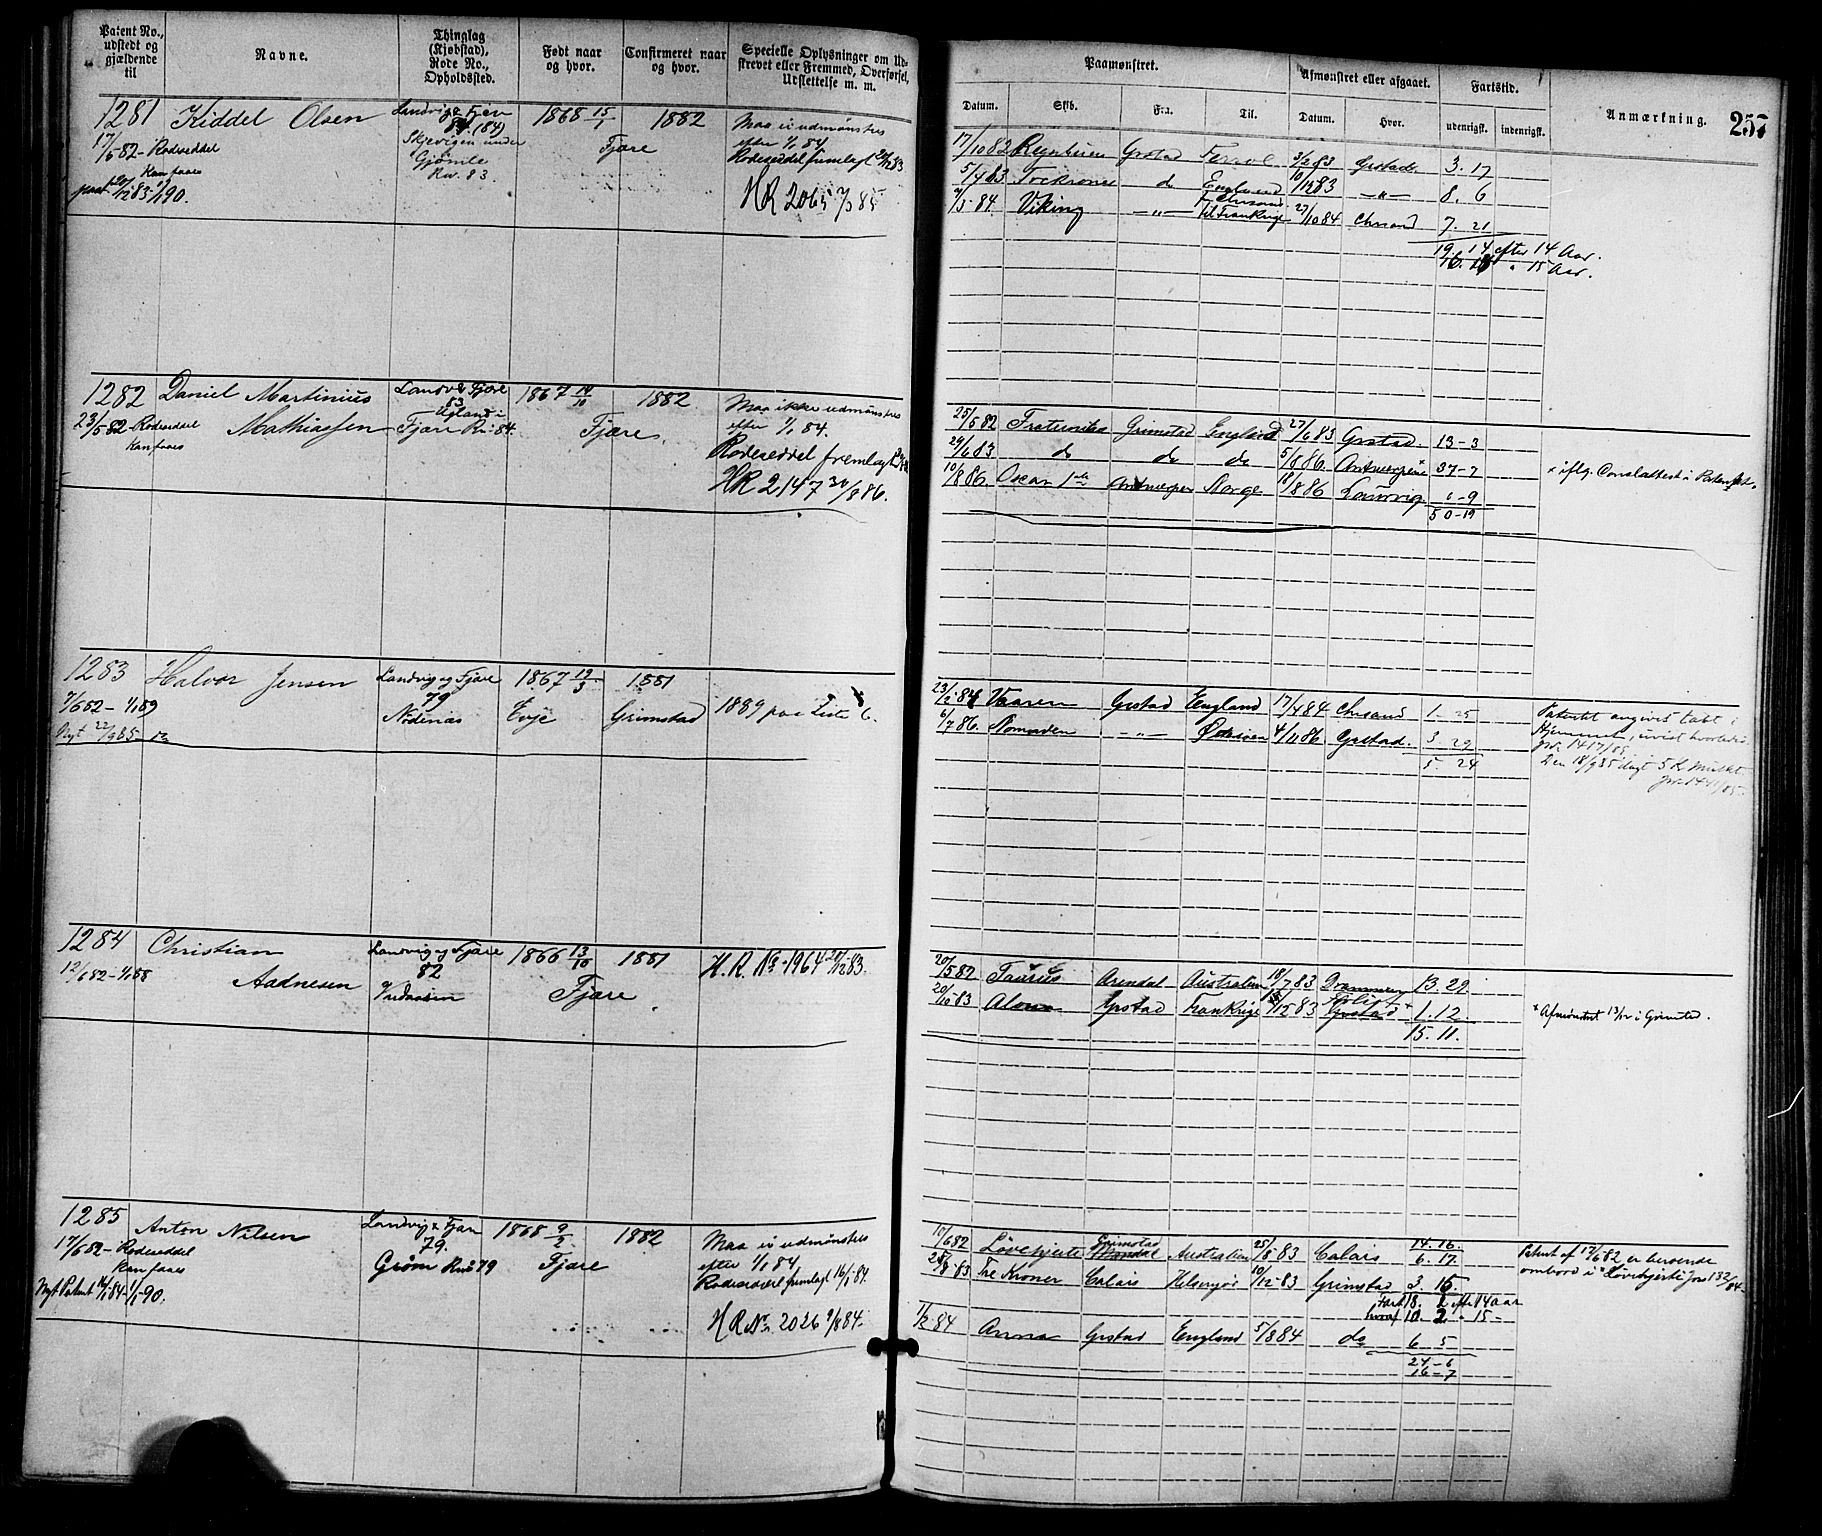 Patent No., udstedt og gjældende til
Navne.
Thinglag (Kjøbstad), Rode No., Opholdssted.
Født naar og hvor.
Confirmeret naar og hvor.
Specielle Oplysninger om Udskrevet eller Fremmed, Overførsel, Udslettelse m. m.
Paamønstret.
Afmønstret eller afgaaet.
Fartstid.
Anmærkning.
257
Datum.
Skib.
Fra.
Til.
Datum.
Hvor.
udenrigsk.
indenrigsk.
1281 Kiddel Olsen
17/5 82 - Rodeseddel
Kan faaes
Skjevigen under
Gjömle
Rn. 83.
1868 15/1 Fjære
1882
Maa ei udmønstres
efter 1/1 84
HR 2065
17/10 82 Grstad 3/2 83 Grstad 3. 17
5/4 83 do England 10/12 83 -"- 8. 6
84 Viking -"- til Frankrige 27/10 84 Chrsand 7. 21
19. 14 efter 14 Aar.
" 15 Aar.
1282 Daniel Martinius
Mathiassen
23/5 82 - Rodeseddel
kan faaes
83
Ugland i
Fjære Rn: 84.
1867 14/10 Fjære
1882.
Maa ikke udmønstres
efter 1/1 84.
Rodeseddel fremlagt
HR 2147 86.
25/5 82 Grimstad England 27/6 83 Grstad. 13-3
29/6 83 do do do 5/8 86. Antwerpen x 37-7
10/8 86. Oscar 1ste Antwerpen Norge 18/8 86 Laurvig "-9
50-19
x iflg. Conslattest i Patentet.
1283 Halvor Jensen
7/6 82 - 1/1 89
Nyt 22/9 85 - do
Landvig og Fjære
79
1867 19/3 Evje
1881 Grimstad
1889 paa Liste 6.
23/2 84 Vaaren Grstad England 17/4 84 Chrsand 1. 25
6/7 86. Nomaden -"- Østersøen 4/11 86 Grstad. 3. 29
5. 24
Patentet angives tabt i
Hjemmet, uvist hvorledes.
Jr. 1417/85.
Den 18/9 85 dagt 5 K. Mulkt
1284 Christian
Aadnesen
12/6 82 - 1/1 88
Landvig og Fjære
82
1866 13/10 Fjære
1881
H. R. No 1964 20/12 83.
20/5 82 Taurus Arendal Australien 18/7 83 Drammen 13. 29
20/10 83 Grstad Frankrige 83 Grstad x 1. 12.
15. 11.
x Afmønstret 13/12 i Grimstad.
1285 Anton Nilsen
17/6 82 - Rodeseddel
kan faaes
Nyt Patent 16/1 84 - 1/1 90.
Landvig & Fjære
79.
Grøm Rn: 79
1868 9/2 Fjære
1882
Maa ei udmønstres
efter 1/1 84
Rodeseddel fremlagt 16/1 84.
HR No 2026 84.
Grimstad
Løvehjerte Mandal Australien 25/8 83 Calais 14. 16.
6. 17.
83 Tre Kroner Calais Helsingør 10/12 83 Grimstad 3. 15.
Fart 18. 2 efter 14 aar
hvoraf 10. 2 " 15 -
84 Anna Grstad England 5/8 84 do 6. 5
24-6
16-7
Patent af 17/6 82 er beroende
ombord i "Løvehjerte" Jrn 132/84.